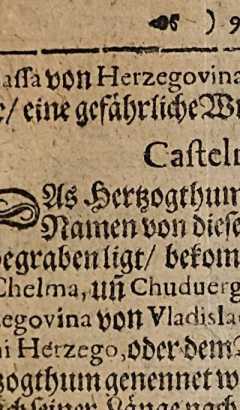 ) 9
assa von Herzegovina
/ eine gefährliche Wu
Casteln
DAs Hertzogthum
Namen von diese
egraben ligt/ bekom
Chelma, uñ Chuduerg
egovina von Vladisla
i Herzego, oder dem
zogthum genennet w
seiner Länge nach